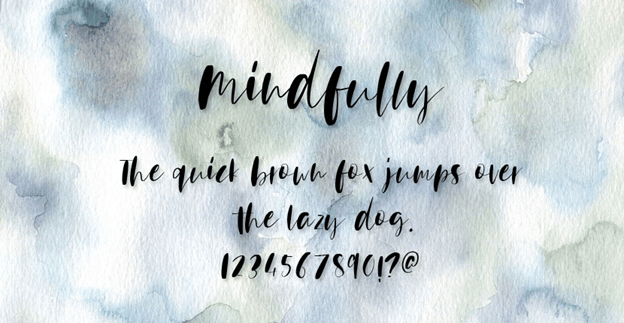 mindfully
The quick brown fox jumps over
the lazy dog.
1234567890!?@